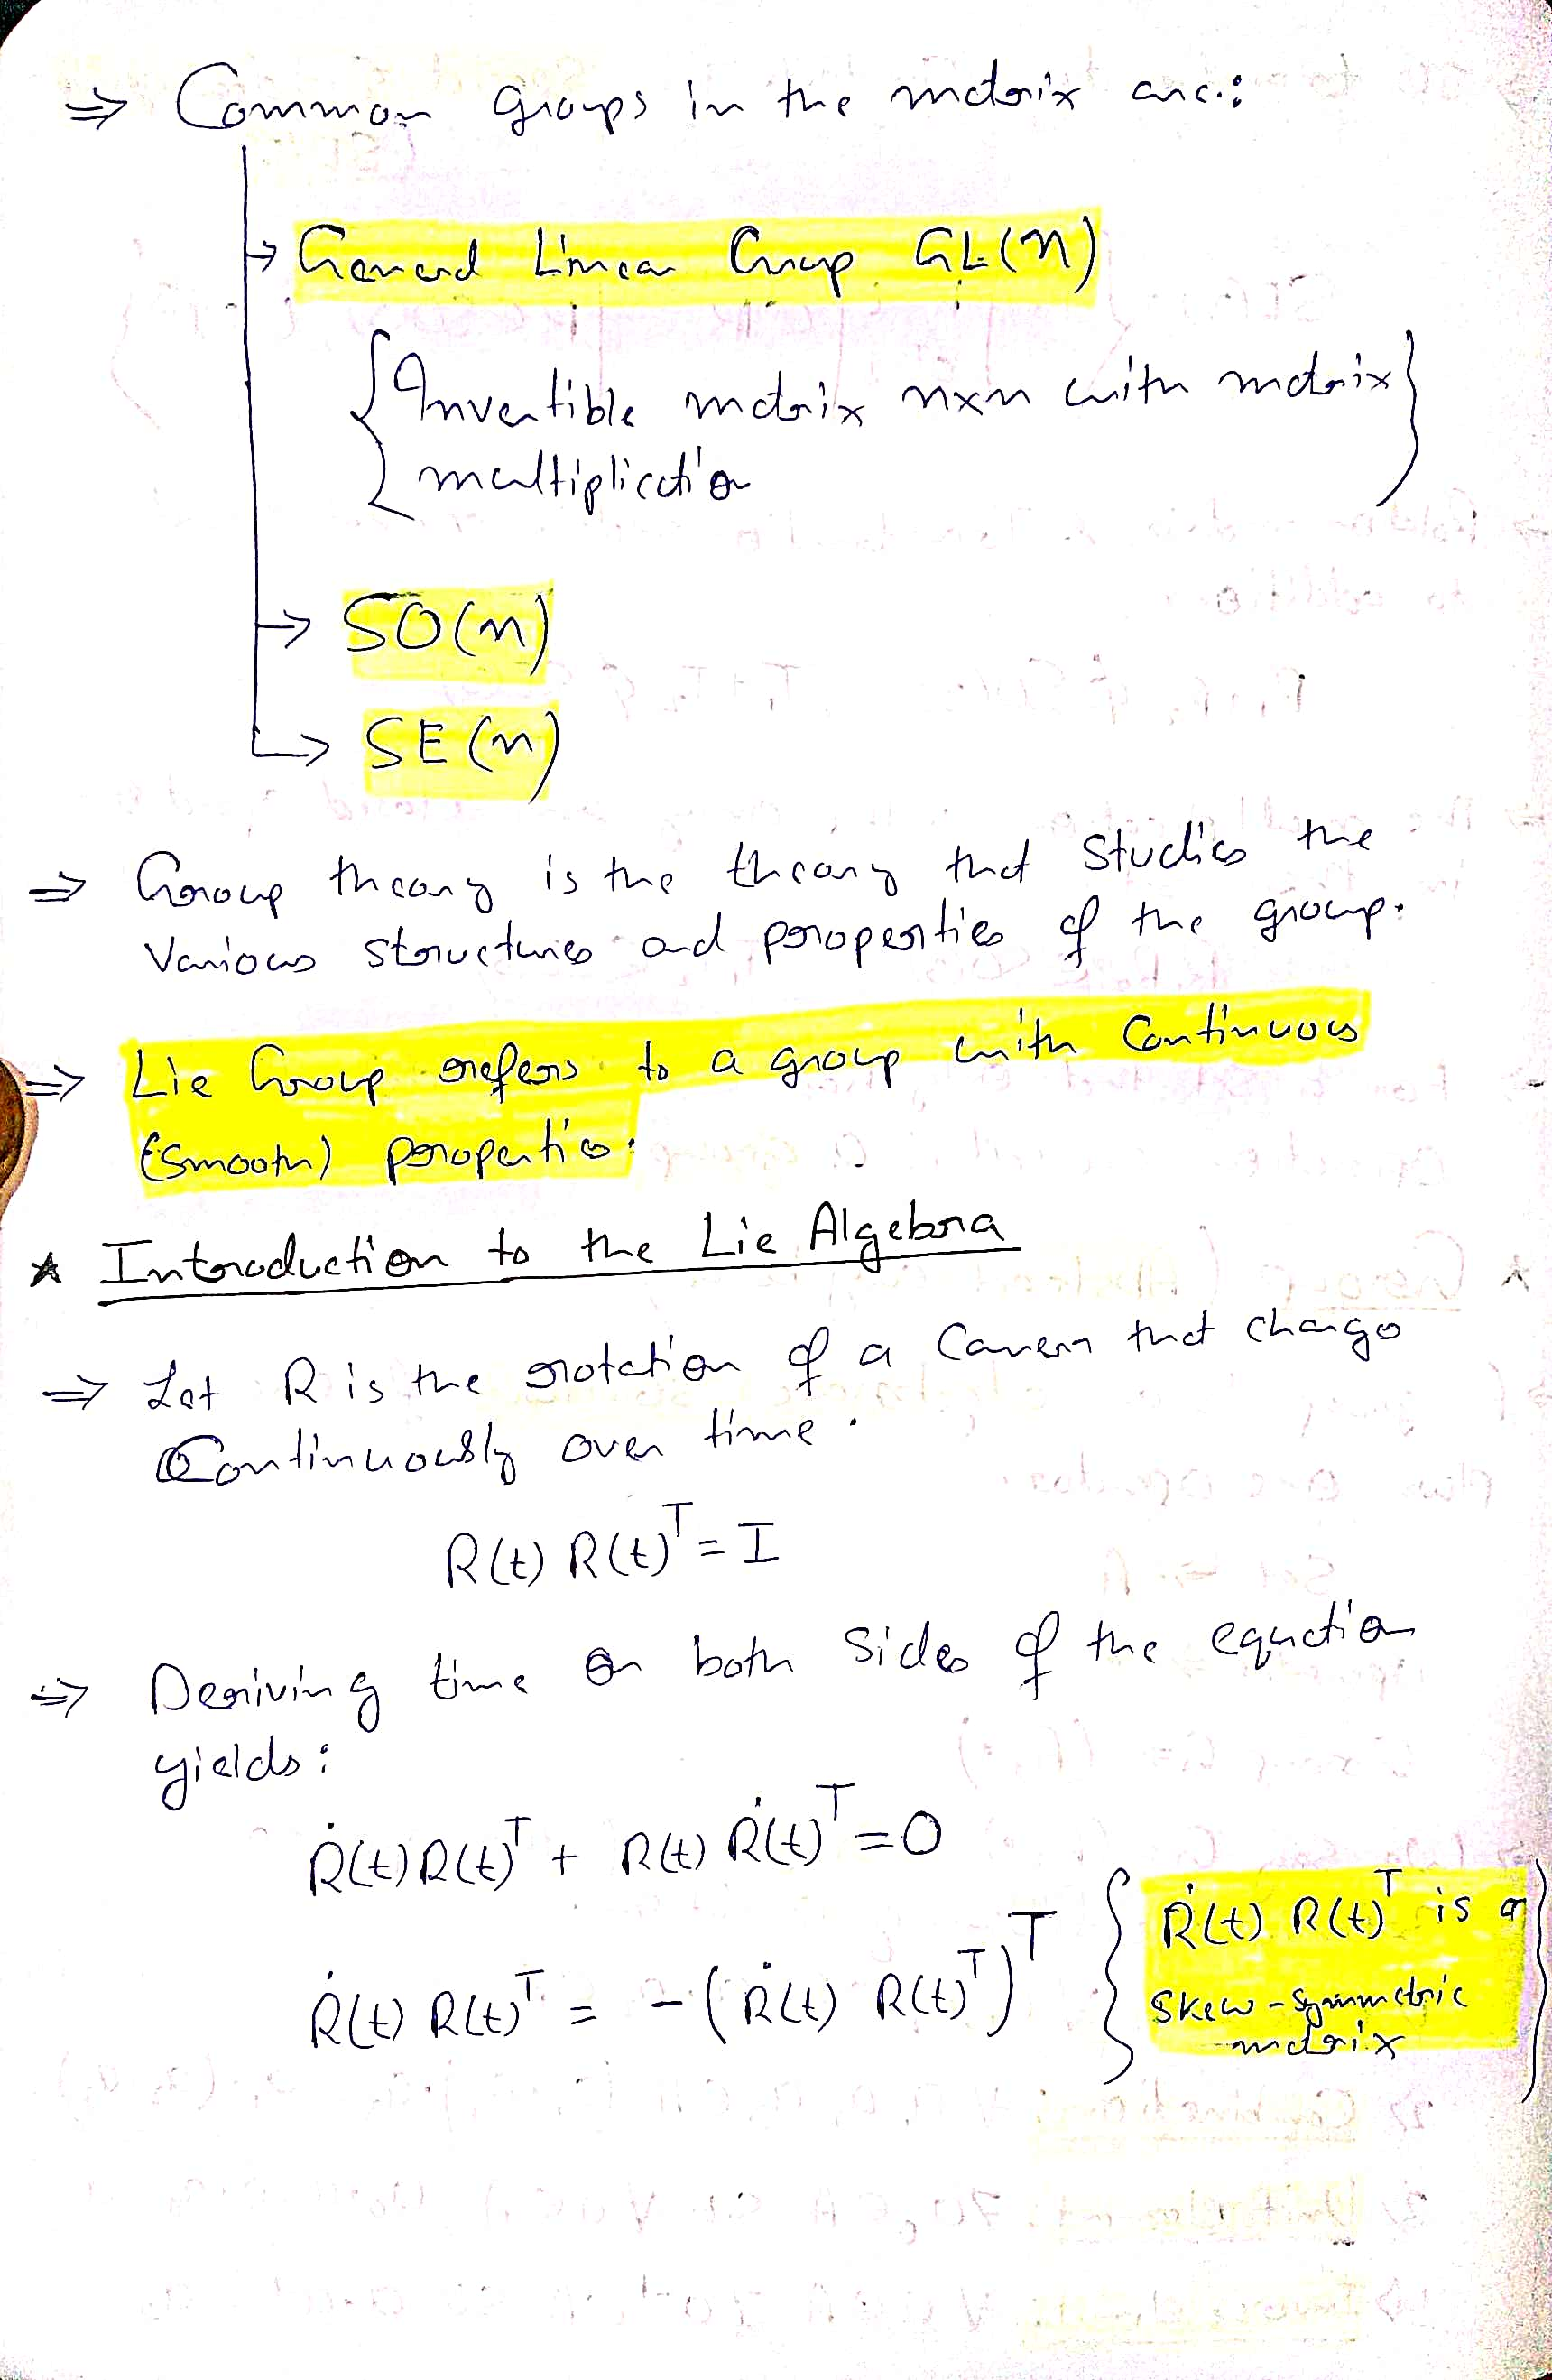 ⇒ Common groups in the matrix are:
→ General Linear Group GL(n)
{Invertible matrix nxn with matrix
multiplication}
→ SO(n)
→ SE(n)
⇒ Group theory is the theory that studies the
various structures and properties of the group.
⇒ Lie Group refers to a group with Continuous
(smooth) properties.
* Introduction to the Lie Algebra
⇒ Let R is the rotation of a Camera that change
Continuously over time.
R(t) R(t)ᵀ = I
⇒ Deriving time on both sides of the equation
yields:
Ṙ(t) R(t)ᵀ + R(t) Ṙ(t)ᵀ = 0
Ṙ(t) R(t)ᵀ = -(Ṙ(t) R(t)ᵀ)ᵀ {Ṙ(t) R(t)ᵀ is a
skew-symmetric
matrix}